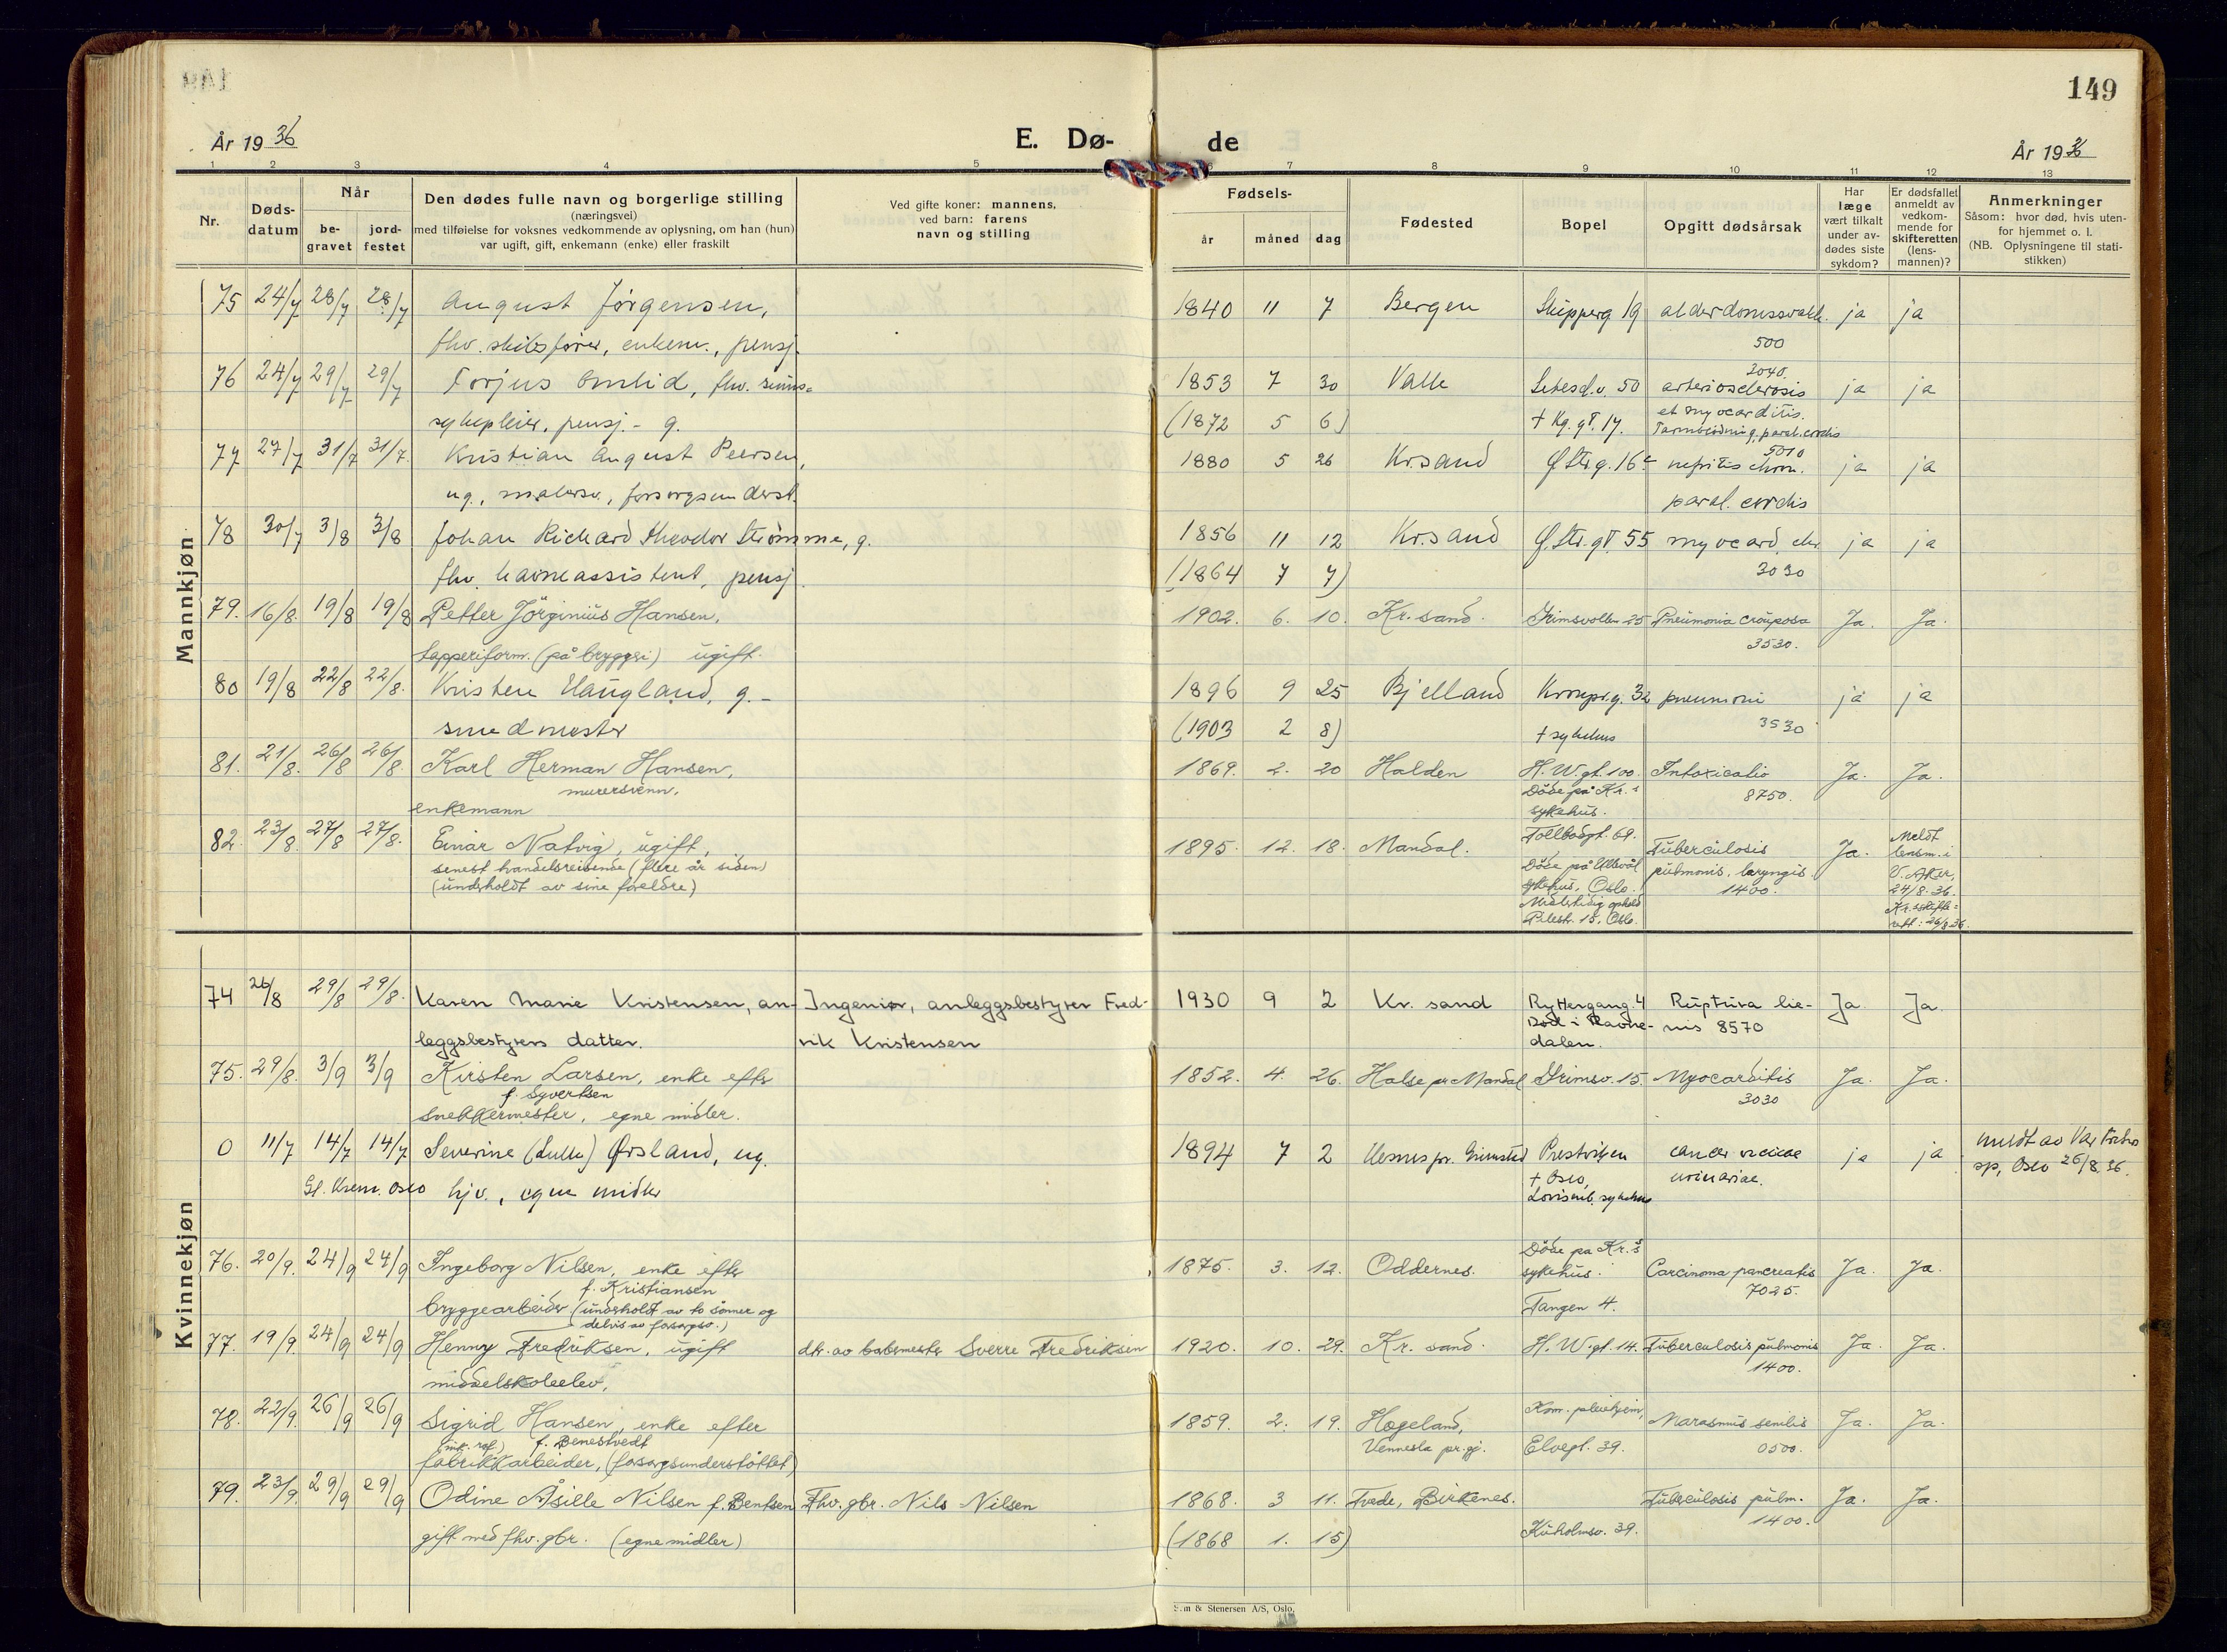 149
År 1936
E. Dø-
de
År 1936
1 2 3 4 5
7 8 9 10 11 12 13
Nr.
Døds-
datum
Når
be-
gravet
jord-
festet
Den dødes fulle navn og borgerlige stilling
(næringsvei)
med tilføielse for voksnes vedkommende av oplysning, om han (hun)
var ugift, gift, enkemann (enke) eller fraskilt
Ved gifte koner: mannens,
ved barn: farens
navn og stilling
Fødsels-
år måned dag
Fødested
Bopel
Opgitt dødsårsak
Har
læge
vært tilkalt
under av-
dødes siste
sykdom?
Er dødsfallet
anmeldt av
vedkom-
mende for
skifteretten
(lens-
mannen)?
Anmerkninger
Såsom: hvor død, hvis uten-
for hjemmet o. l.
(NB. Oplysningene til stati-
stikken)
Mannkjøn
75 24/7 28/7 28/7 August Jørgensen, 1840 11 7 Bergen Skipperg 19 alderdomssvakh. ja ja
fhv. skibsfører, enkem., pensj. 500
76 24/7 29/7 29/7 Torjus Omlid, fhv. sinns= 1853 7 30 Valle Setesd.v. 50 2040. arteriosclerosis ja ja
sykepleier, pensj. - g. (1872 5 6) + Kg. gt. 17. et myocarditis.
77 27/7 31/7 31/7. Kristian August Peersen, 1880 5 26 Kr.sand Ø.Str.g. 16 c nefritis chron. 5010 ja ja
ug., malersv., forsorgsunderst. paral. cordis
78 30/7 3/8 3/8 Johan Richard Theodor Strømme, g. 1856 11 12 Kr.sand Ø.Str.gt. 55 myocard. chr. ja ja
fhv. havneassistent, pensj. (1864 7 7) 3030
79. 16/8. 19/8 19/8 Petter Jörginius Hansen, 1902. 6. 10. Kr.sand. Grimsvollen 25 Pneumonia crouposa Ja. Ja.
tapperiform. (på bryggeri) ugift. 3530.
80 19/8 22/8 22/8. Kristen Haugland, g. - 1896 9 25 Bjelland Kronpr.g. 32 pneumoni ja ja
smedmester (1903 2 8) + sykehus 3530
81. 21/8. 26/8 26/8. Karl Herman Hansen, 1869. 2. 20 Halden H. W. gt. 100. Intoxicatio Ja. Ja.
murersvenn, Döde på Kr.s 8750.
enkemann sykehus.
82. 23/8. 27/8 27/8. Einar Natvig, ugift, 1895. 12. 18. Mandal. Tollbodgt. 69. Tuberculosis Ja. Meldt
senest handelsreisende (flere år siden) Döde på Ullevål pulmonis, laryngis. lensm. i
(underholdt av sine foreldre) sykehus, Oslo. 1400. V. Aker,
Midlertidig ophold 24/8. 36.
Pilestr. 15, Oslo. Kr.s skifte=
rett: 26/8 36.
Kvinnekjøn
74 26/8 29/8 29/8. Karen Marie Kristensen, an- Ingeniør, anleggsbestyrer Fred- 1930 9 2 Kr. sand Ryttergang. 4 Ruptura lie- Ja. Ja.
leggsbestyrers datter. rik Kristensen Död i Ravne- nis 8570
dalen.
75. 29/8. 3/9 3/9 Kirsten Larsen, enke efter 1852. 4. 26. Halse pr Mandal Grimsv. 15. Myocarditis Ja. Ja.
f. Syvertsen 3030
snekkermester, egne midler.
0 11/7 14/7 14/7 Severine (Lulle) Ørsland, ug. 1894 7 2 Hesnes pr. Grimsted Prestviken cancer vesicae ja ja meldt av Var Frelses
Gl. Krem. Oslo hjv., egne midler + Oslo, urinariae. sp, Oslo 26/8 36.
Lovisenb. sykehus
76. 20/9. 24/9 24/9 Ingeborg Nilsen, enke efter 1875. 3. 12. Oddernes. Döde på Kr.s sykehus. Carcinoma pancreatis Ja. Ja.
f. Kristiansen 7025.
bryggearbeider (underholdt av to sönner og Tangen 4.
delvis av forsorgsv.)
77. 19/9. 24/9 24/9 Henny Fredriksen, ugift dtr. av bademester Sverre Fredriksen 1920. 10. 29. Kr. sand. H. W. gt. 14. Tuberculosis pulmonis Ja. Ja.
middelskoleelev, 1400.
78. 22/9. 26/9 26/9 Sigrid Hansen, enke efter 1859. 2. 19. Hogeland, Kom. pleiehjem, Marasmus senilis Ja. Ja.
f. Benestvedt Vennesla pr.gj. Elvegt. 39. 0500.
fabrikkarbeider, (forsorgsunderstöttet)
79. 23/9. 29/9 29/9 Odine Åsille Nilsen f. Bentsen Fhv. gbr. Nils Nilsen 1868. 3 11. Tvede, Birkenes. Tuberculosis pulm. Ja. Ja.
gift med fhv. gbr. (egne midler) (1868 1. 15) Kuholmsv. 39. 1400.
& Stenersen A/S, Oslo.